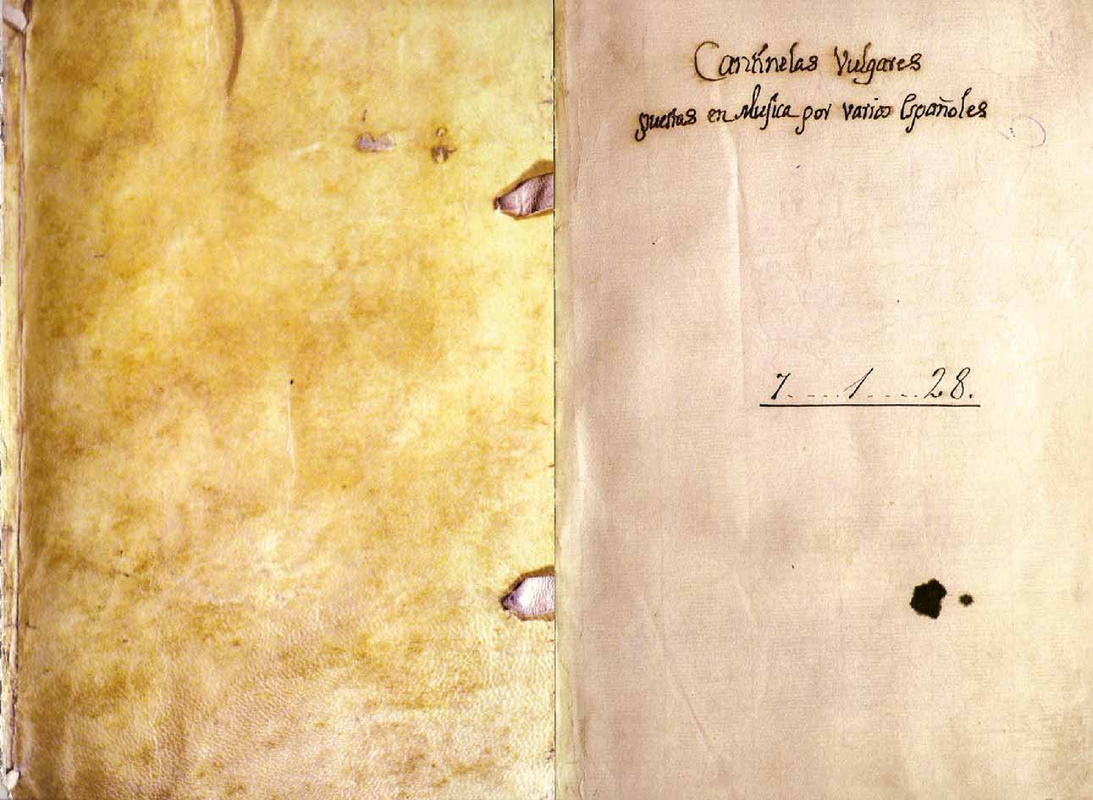 Cantinelas Vulgares
puestas en Musica por varios Españoles
7.....1.....28.